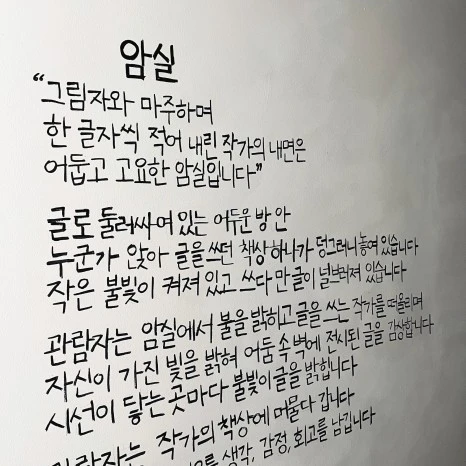 암실
“그림자와 마주하며
한 글자씩 적어 내린 작가의 내면은
어둡고 고요한 암실입니다”
글로 둘러싸여 있는 어두운 방 안
누군가 앉아 글을 쓰던 책상 하나가 덩그러니 놓여 있습니다
작은 불빛이 켜져 있고 쓰다 만 글이 널브러져 있습니다
관람자는 암실에서 불을 밝히고 글을 쓰는 작가를 떠올리며
자신이 가진 빛을 밝혀 어둠 속 벽에 전시된 글을 감상합니다
시선이 닿는 곳마다 불빛이 글을 밝힙니다
관람자는 작가의 책상에 머물다 갑니다
생각, 감정, 회고를 남깁니다